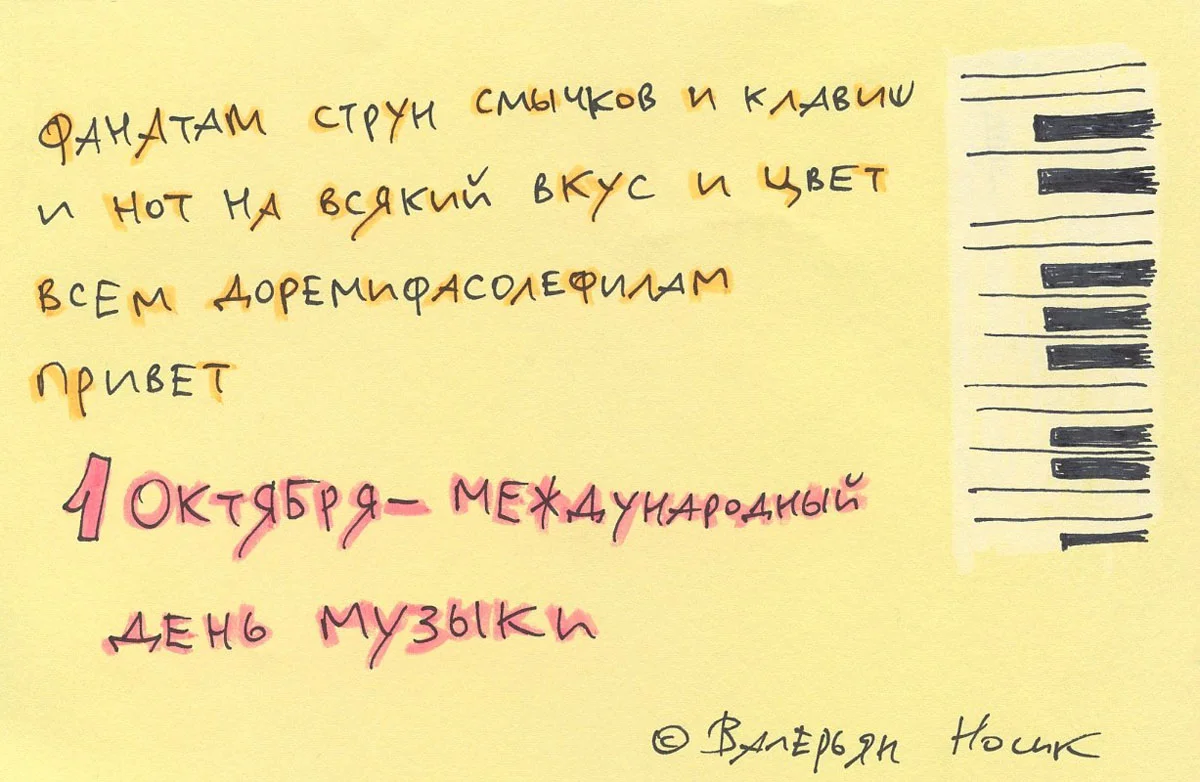 ФАНАТАМ СТРУН СМЫЧКОВ И КЛАВИШ
И НОТ НА ВСЯКИЙ ВКУС И ЦВЕТ
ВСЕМ ДОРЕМИФАСОЛЕФИЛАМ
ПРИВЕТ
1 ОКТЯБРЯ – МЕЖДУНАРОДНЫЙ
ДЕНЬ МУЗЫКИ
© ВАЛЕРЬЯН НОСИК